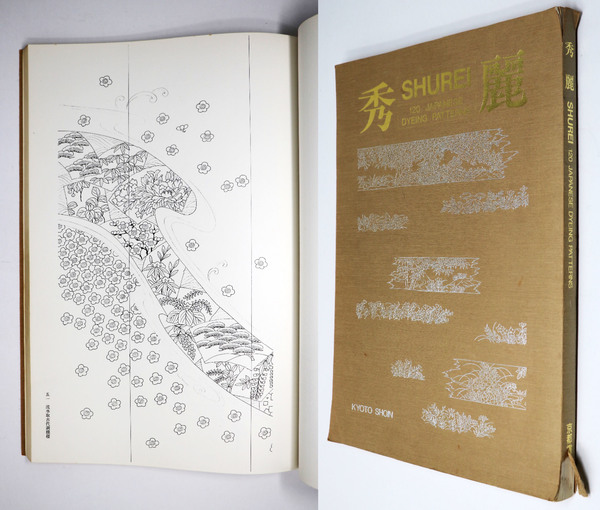 秀麗
SHUREI
120 JAPANESE
DYEING PATTERNS
KYOTO SHOIN
秀麗 SHUREI 120 JAPANESE DYEING PATTERNS
五一